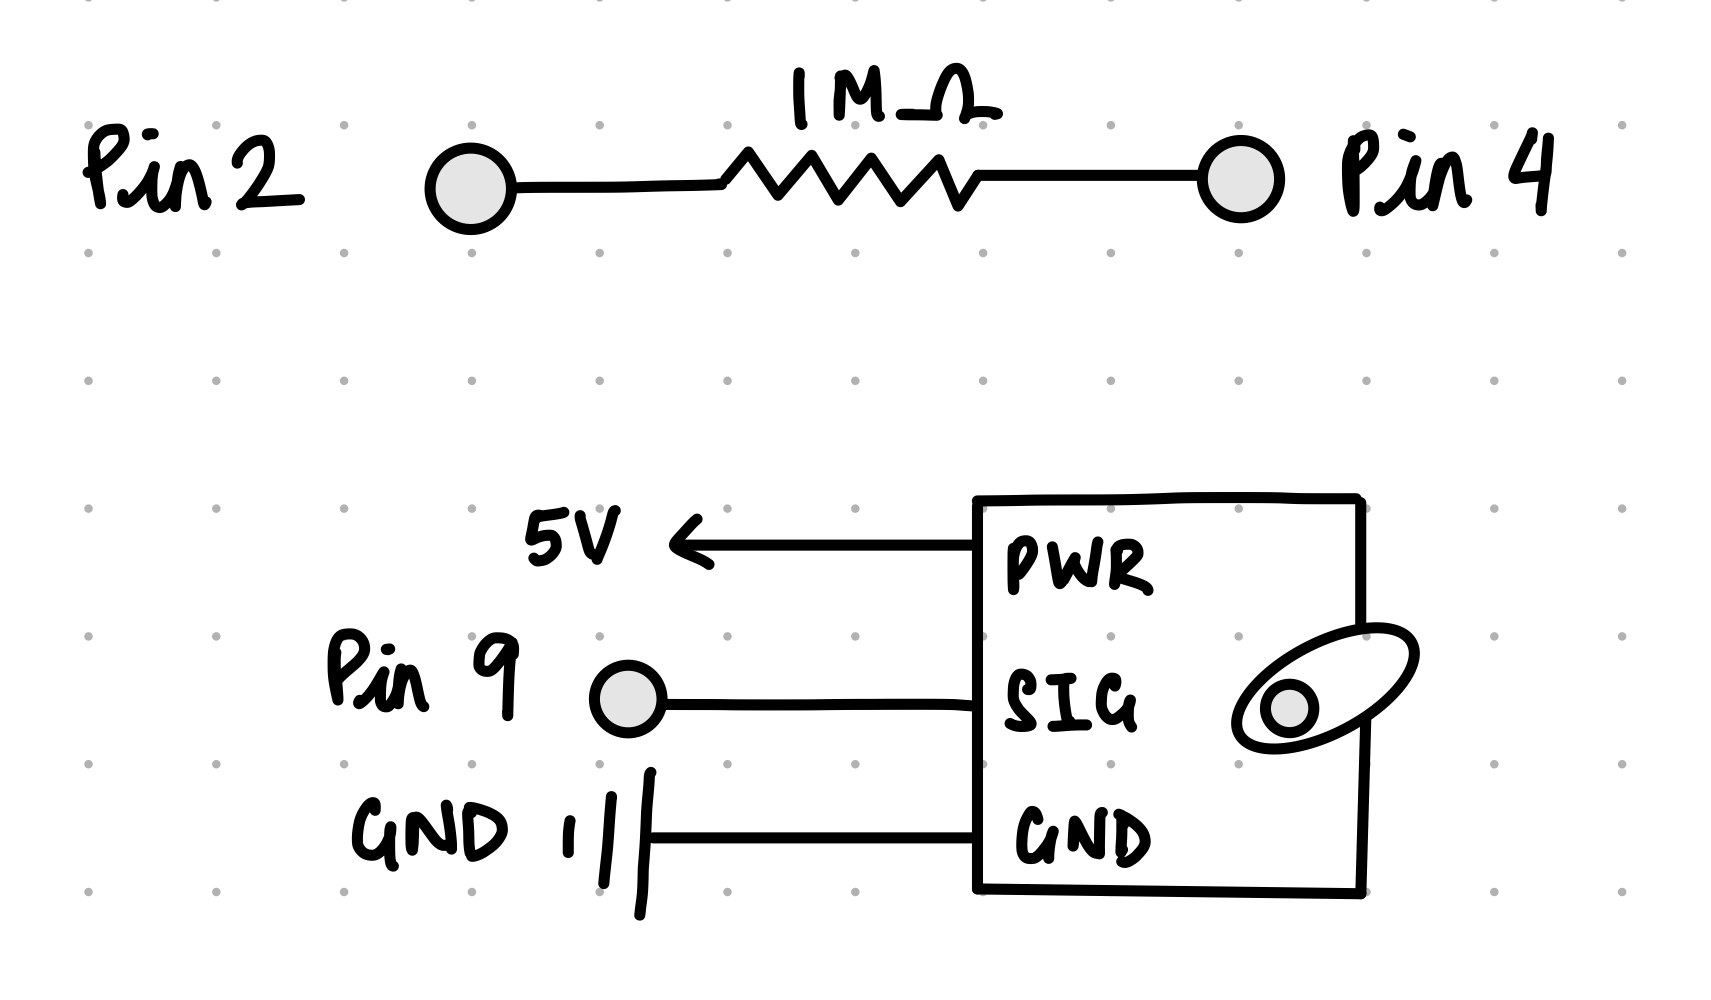 1MΩ
Pin 2
Pin 4
5V
PWR
Pin 9
SIG
GND
GND